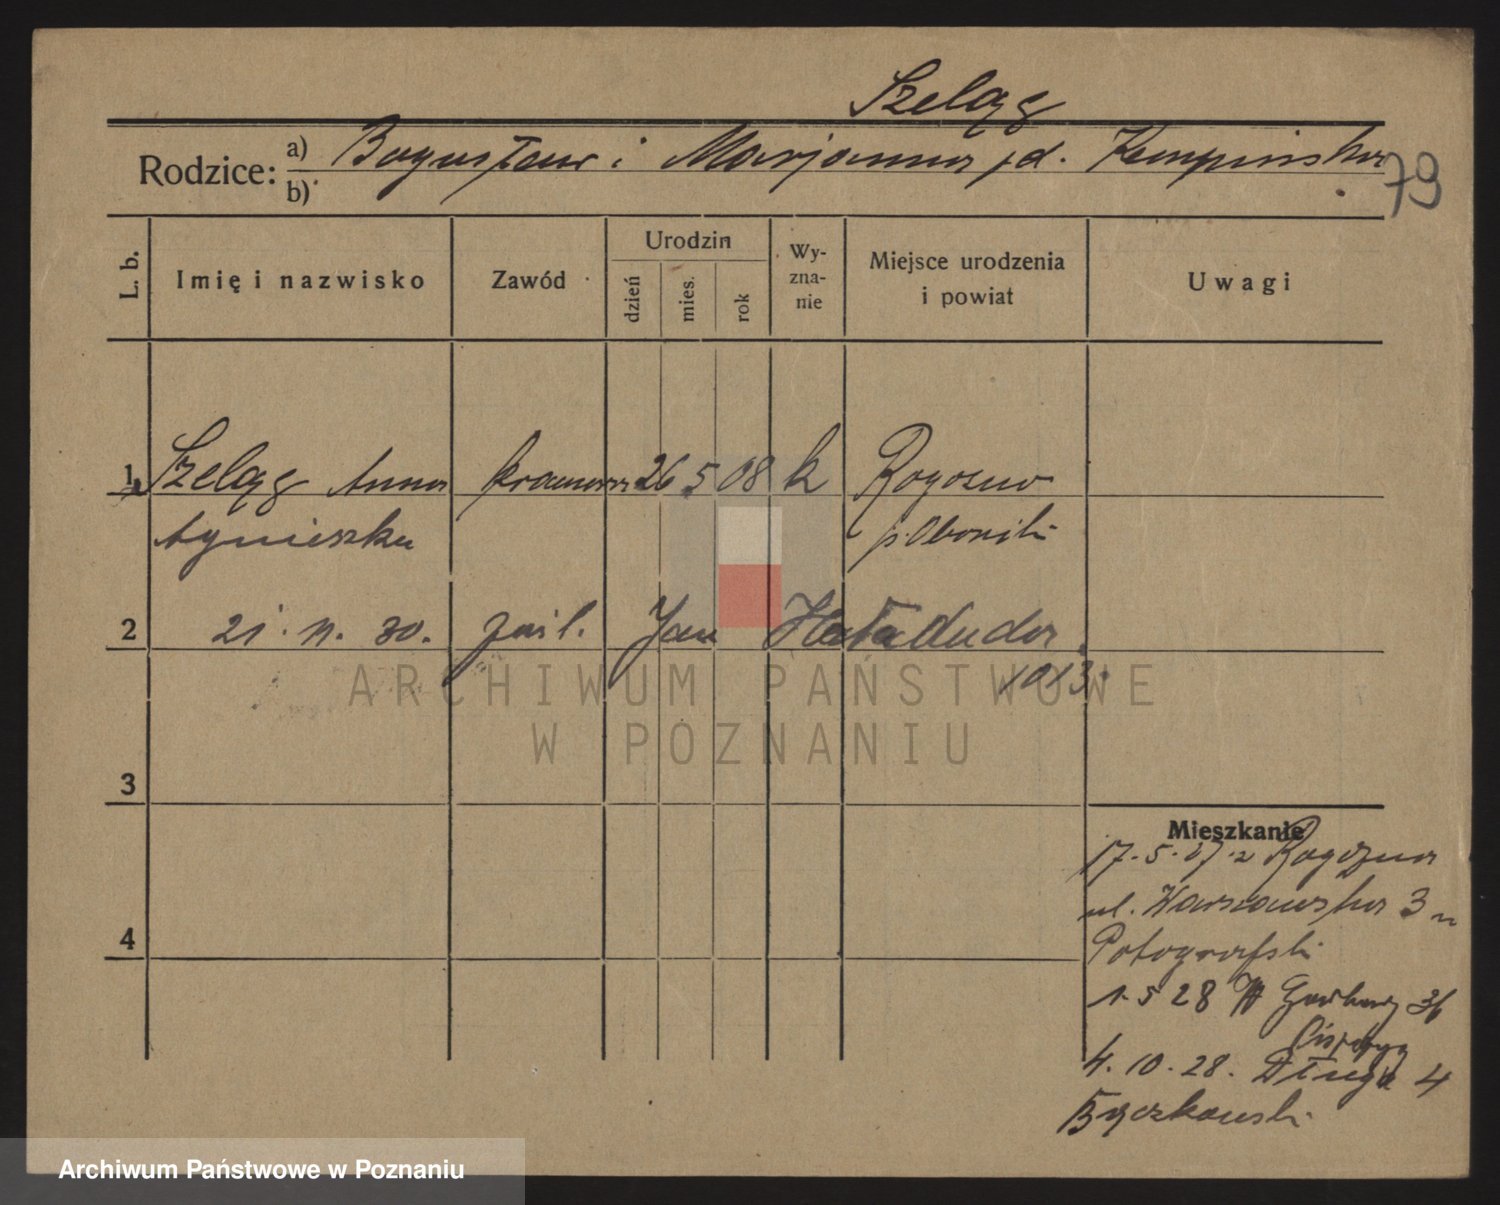 Szeląg
Rodzice: a) Bogusław i Marjanna zd. Kempińska
b)
79
L. b. Imię i nazwisko Zawód Urodzin dzień mies. rok Wyznanie Miejsce urodzenia i powiat Uwagi
1 Szeląg Anna 26 5 08 k Rogozno
Agnieszka p. Oborniki
2 21. 11. 30. zaśl. Jan
1013.
3
Mieszkanie
17. 5. 27. z Rogozna
ul. Warszawska 3
4
1. 5 28 Garbary
4. 10. 28. Długa 4
ARCHIWUM PAŃSTWOWE
W POZNANIU
Archiwum Państwowe w Poznaniu